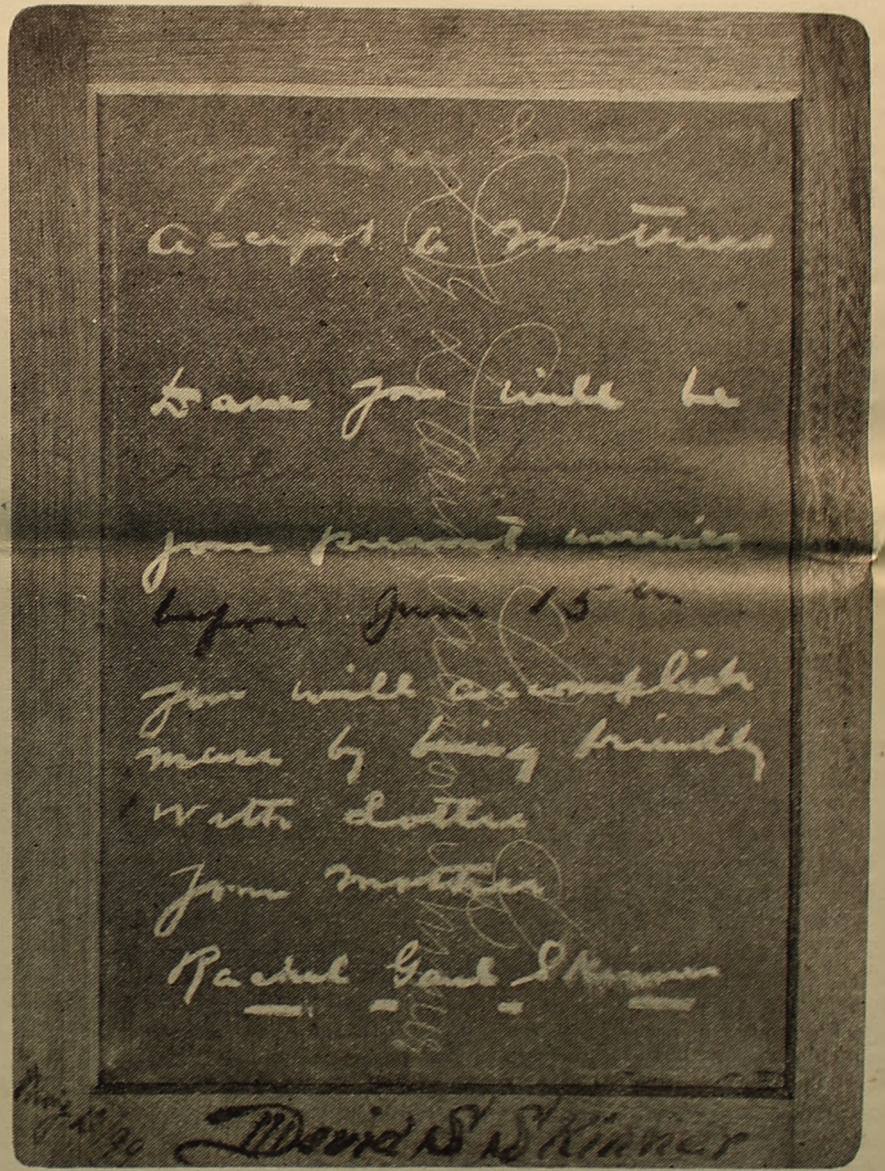 my dear Son
accept a mothers
Dave you will be
your present worries
before June 15th
you will accomplish
more by being friendly
with Lottie
your mother
Rachel Gaul Skinner
David S Skinner